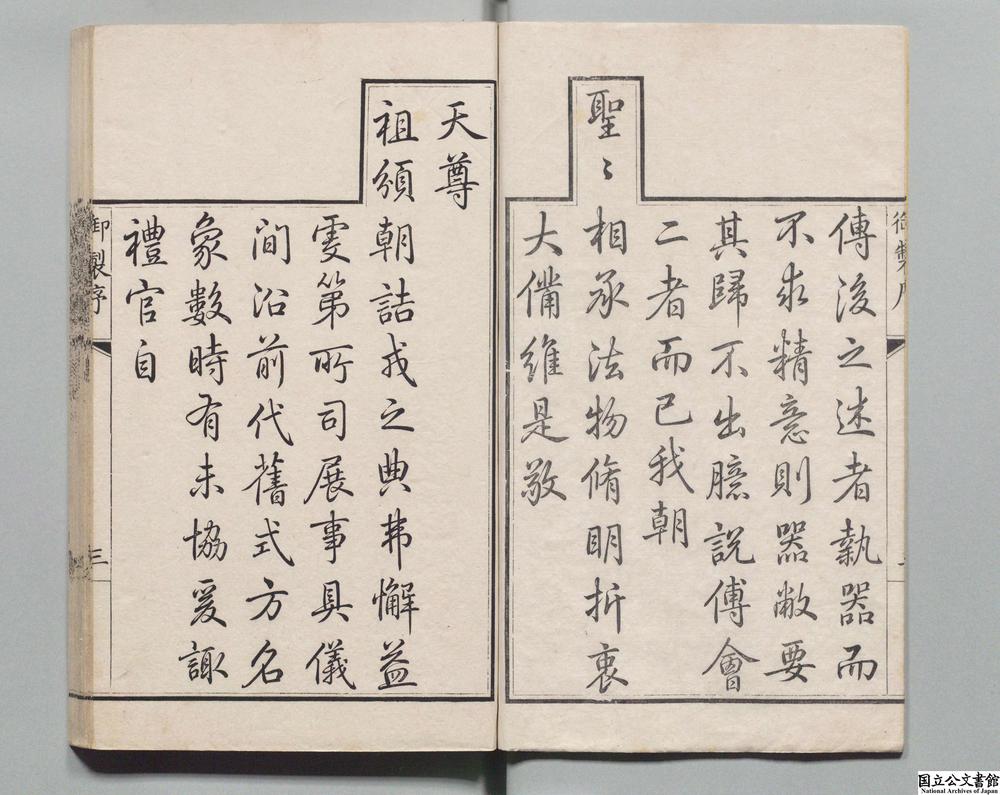 傳後之述者執器而
不求精意則器敝要
其歸不出臆說傅會
二者而已我朝
聖〻相承法物脩明折衷
大備維是敬
天尊
祖頒朝詰戎之典弗懈益
虔第所司展事具儀
間沿前代舊式方名
象數時有未協爰諏
禮官自
御製序 三
国立公文書館
National Archives of Japan